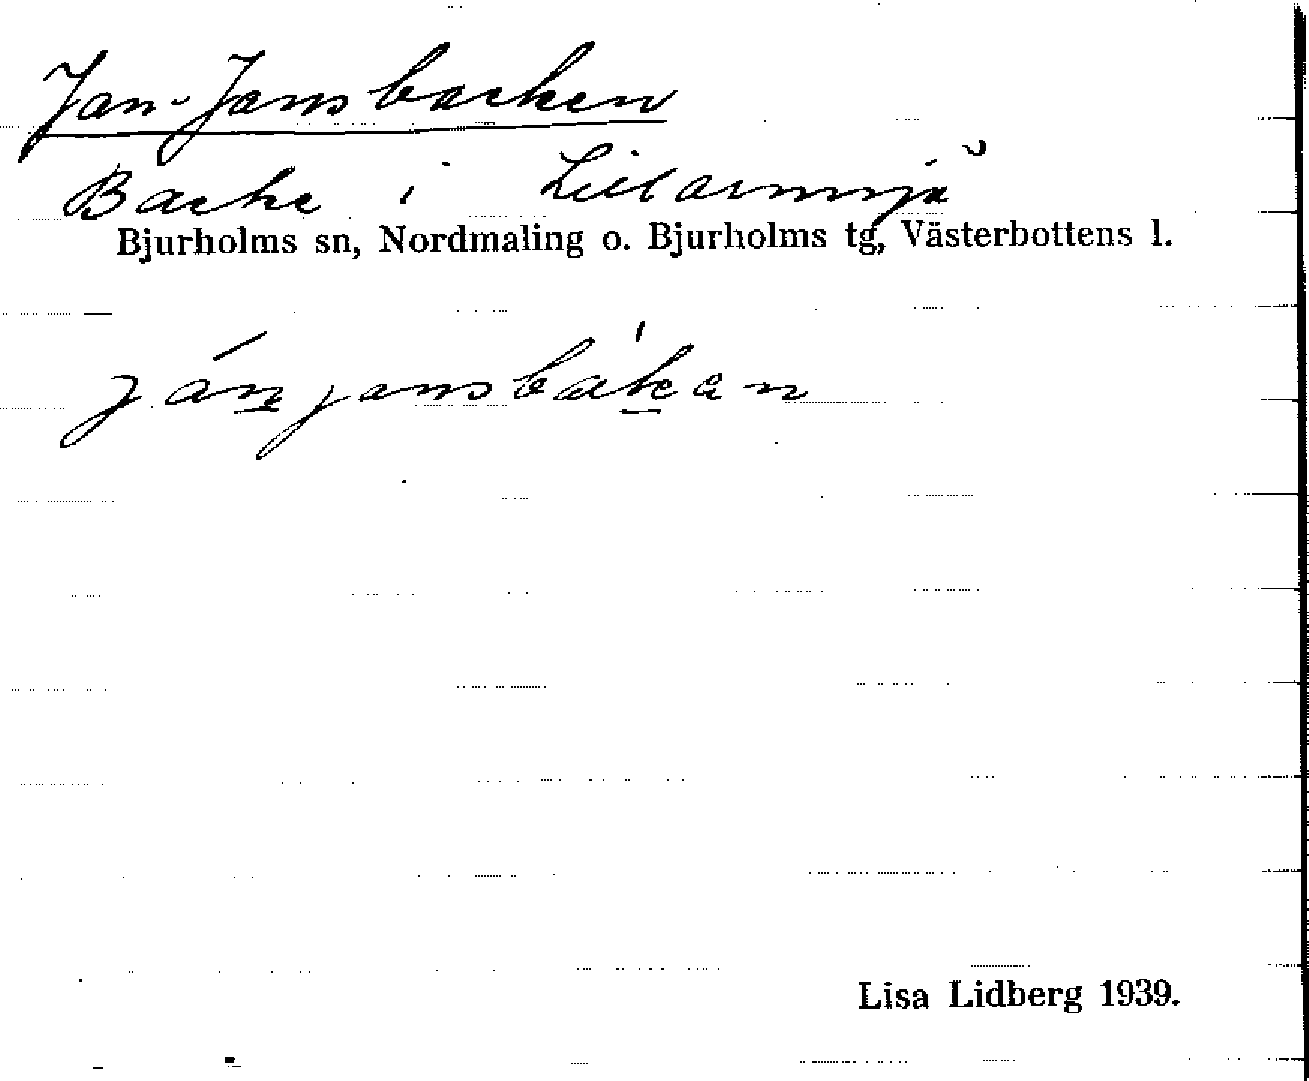 Jan-Jansbacken
Backe i Lillarmsjö
Bjurholms sn, Nordmaling o. Bjurholms tg, Västerbottens l.
ján̲jansbák̲an
Lisa Lidberg 1939.